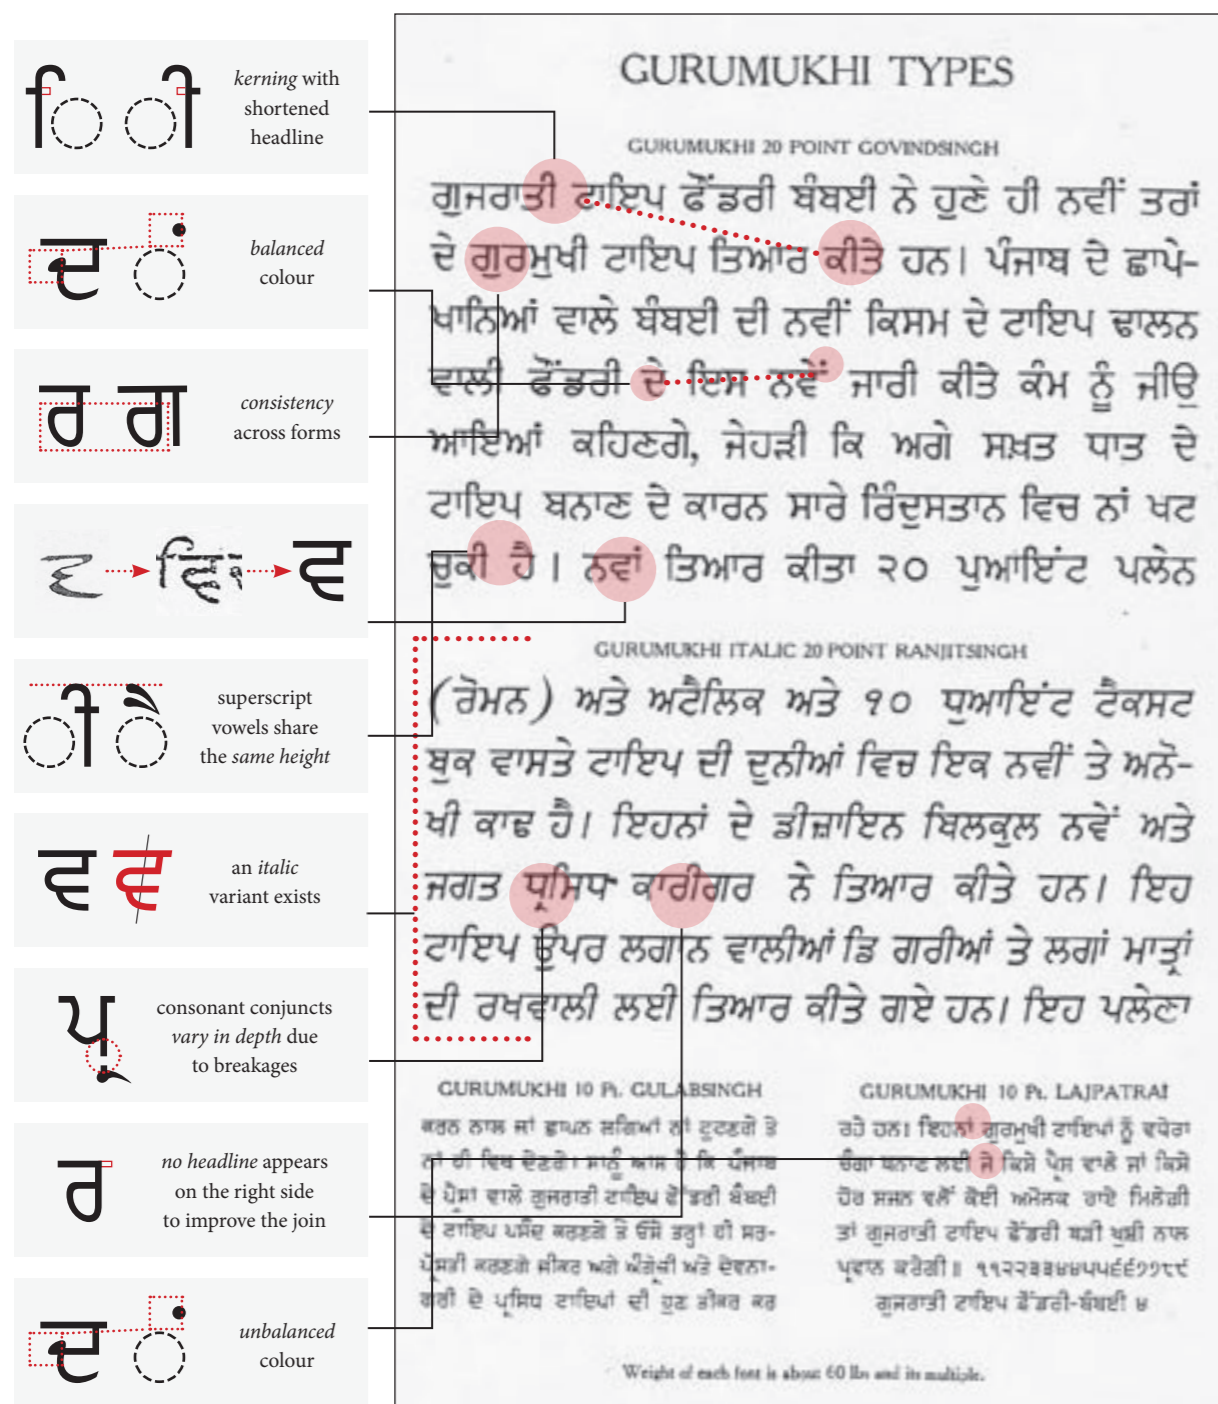 kerning with
shortened
headline
balanced
colour
ਰ ਰਗ
consistency
across forms
ਵ
superscript
vowels share
the same height
ਵ ਵ
an italic
variant exists
consonant conjuncts
vary in depth due
to breakages
ਰ
no headline appears
on the right side
to improve the join
unbalanced
colour
GURUMUKHI TYPES
GURUMUKHI 20 POINT GOVINDSINGH
ਗੁਜਰਾਤੀ ਟਾਇਪ ਫੌਂਡਰੀ ਬੰਬਈ ਨੇ ਹੁਣੇ ਹੀ ਨਵੀਂ ਤਰਾਂ
ਦੇ ਗੁਰਮੁਖੀ ਟਾਇਪ ਤਿਆਰ ਕੀਤੇ ਹਨ। ਪੰਜਾਬ ਦੇ ਛਾਪੇ-
ਖਾਨਿਆਂ ਵਾਲੇ ਬੰਬਈ ਦੀ ਨਵੀਂ ਕਿਸਮ ਦੇ ਟਾਇਪ ਢਾਲਨ
ਵਾਲੀ ਫੌਂਡਰੀ ਦੇ ਇਸ ਨਵੇਂ ਜਾਰੀ ਕੀਤੇ ਕੰਮ ਨੂੰ ਜੀਉ
ਆਇਆਂ ਕਹਿਣਗੇ, ਜੇਹੜੀ ਕਿ ਅਗੇ ਸਖ਼ਤ ਧਾਤ ਦੇ
ਟਾਇਪ ਬਨਾਣ ਦੇ ਕਾਰਨ ਸਾਰੇ ਰਿੰਦੁਸਤਾਨ ਵਿਚ ਨਾਂ ਖਟ
ਚੁਕੀ ਹੈ। ਨਵਾਂ ਤਿਆਰ ਕੀਤਾ ੨੦ ਪੁਆਇੰਟ ਪਲੇਨ
GURUMUKHI ITALIC 20 POINT RANJITSINGH
(ਰੋਮਨ) ਅਤੇ ਅਟੈਲਿਕ ਅਤੇ ੧੦ ਧੁਆਇੰਟ ਟੈਕਸਟ
ਬੁਕ ਵਾਸਤੇ ਟਾਇਪ ਦੀ ਦੁਨੀਆਂ ਵਿਚ ਇਕ ਨਵੀਂ ਤੇ ਅਨੋ-
ਖੀ ਕਾਢ ਹੈ। ਇਹਨਾਂ ਦੇ ਡੀਜ਼ਾਇਨ ਬਿਲਕੁਲ ਨਵੇਂ ਅਤੇ
ਜਗਤ ਧ੍ਰਸਿਧ ਕਾਰੀਗਰ ਨੇ ਤਿਆਰ ਕੀਤੇ ਹਨ। ਇਹ
ਟਾਇਪ ਉਪਰ ਲਗਾਨ ਵਾਲੀਆਂ ਡਿ ਗਰੀਆਂ ਤੇ ਲਗਾਂ ਮਾਤ੍ਰਾਂ
ਦੀ ਰਖਵਾਲੀ ਲਈ ਤਿਆਰ ਕੀਤੇ ਗਏ ਹਨ। ਇਹ ਪਲੇਣਾ
GURUMUKHI 10 Pt. GULABSINGH
ਕਰਨ ਨਾਲ ਜਾਂ ਛਾਪਨ ਲਗਿਆਂ ਨਾਂ ਟੁਟਣਗੇ ਤੇ
ਨਾਂ ਹੀ ਵਿਥ ਦੇਣਗੇ। ਸਾਨੂੰ ਆਸ ਹੈ ਕਿ ਪੰਜਾਬ
ਦੇ ਪ੍ਰੈਸਾਂ ਵਾਲੇ ਗੁਜਰਾਤੀ ਟਾਇਪ ਫੌਂਡਰੀ ਬੰਬਈ
ਦੇ ਟਾਇਪ ਪਸੰਦ ਕਰਣਗੇ ਤੇ ਓਸੇ ਤਰ੍ਹਾਂ ਹੀ ਸਰ-
ਪ੍ਰਸਤੀ ਕਰਣਗੇ ਜੀਕਰ ਅਗੇ ਅੰਗ੍ਰੇਜ਼ੀ ਅਤੇ ਦੇਵਨਾ-
ਗਰੀ ਦੇ ਪ੍ਰਸਿਧ ਟਾਇਪਾਂ ਦੀ ਹੁਣ ਤੀਕਰ ਕਰ
GURUMUKHI 10 Pt. LAJPATRAI
ਰਹੇ ਹਨ। ਇਹਨਾਂ ਗੁਰਮੁਖੀ ਟਾਇਪਾਂ ਨੂੰ ਵਧੇਰਾ
ਚੰਗਾ ਬਨਾਣ ਲਈ ਜੇ ਕਿਸੇ ਪ੍ਰੈਸ ਵਾਲੇ ਜਾਂ ਕਿਸੇ
ਹੋਰ ਸਜਨ ਵਲੋਂ ਕੋਈ ਅਮੋਲਕ ਰਾਏ ਮਿਲੇਗੀ
ਤਾਂ ਗੁਜਰਾਤੀ ਟਾਇਪ ਫੌਂਡਰੀ ਬੜੀ ਖੁਸ਼ੀ ਨਾਲ
ਪ੍ਰਵਾਨ ਕਰੇਗੀ॥ ੧੧੨੨੩੩੪੪੫੫੬੬੭੭੮੯
ਗੁਜਰਾਤੀ ਟਾਇਪ ਫੌਂਡਰੀ-ਬੰਬਈ ੪
Weight of each font is about 60 lbs and its multiple.